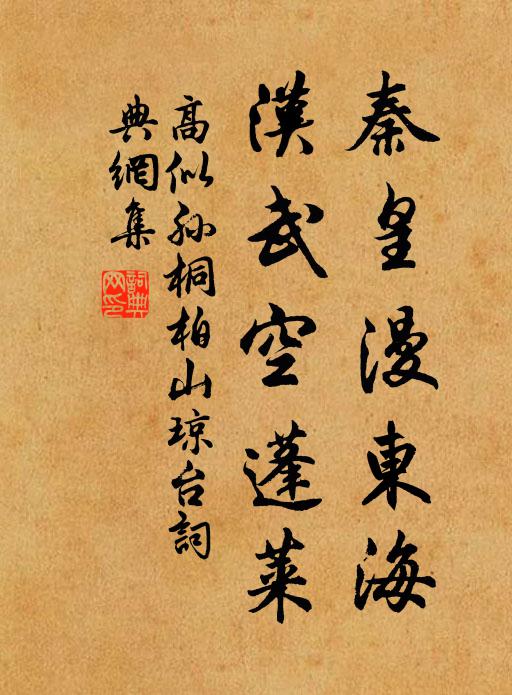 秦皇漫東海
漢武空蓬萊
高似孫桐柏山琼台詞
典網集
詞典網印